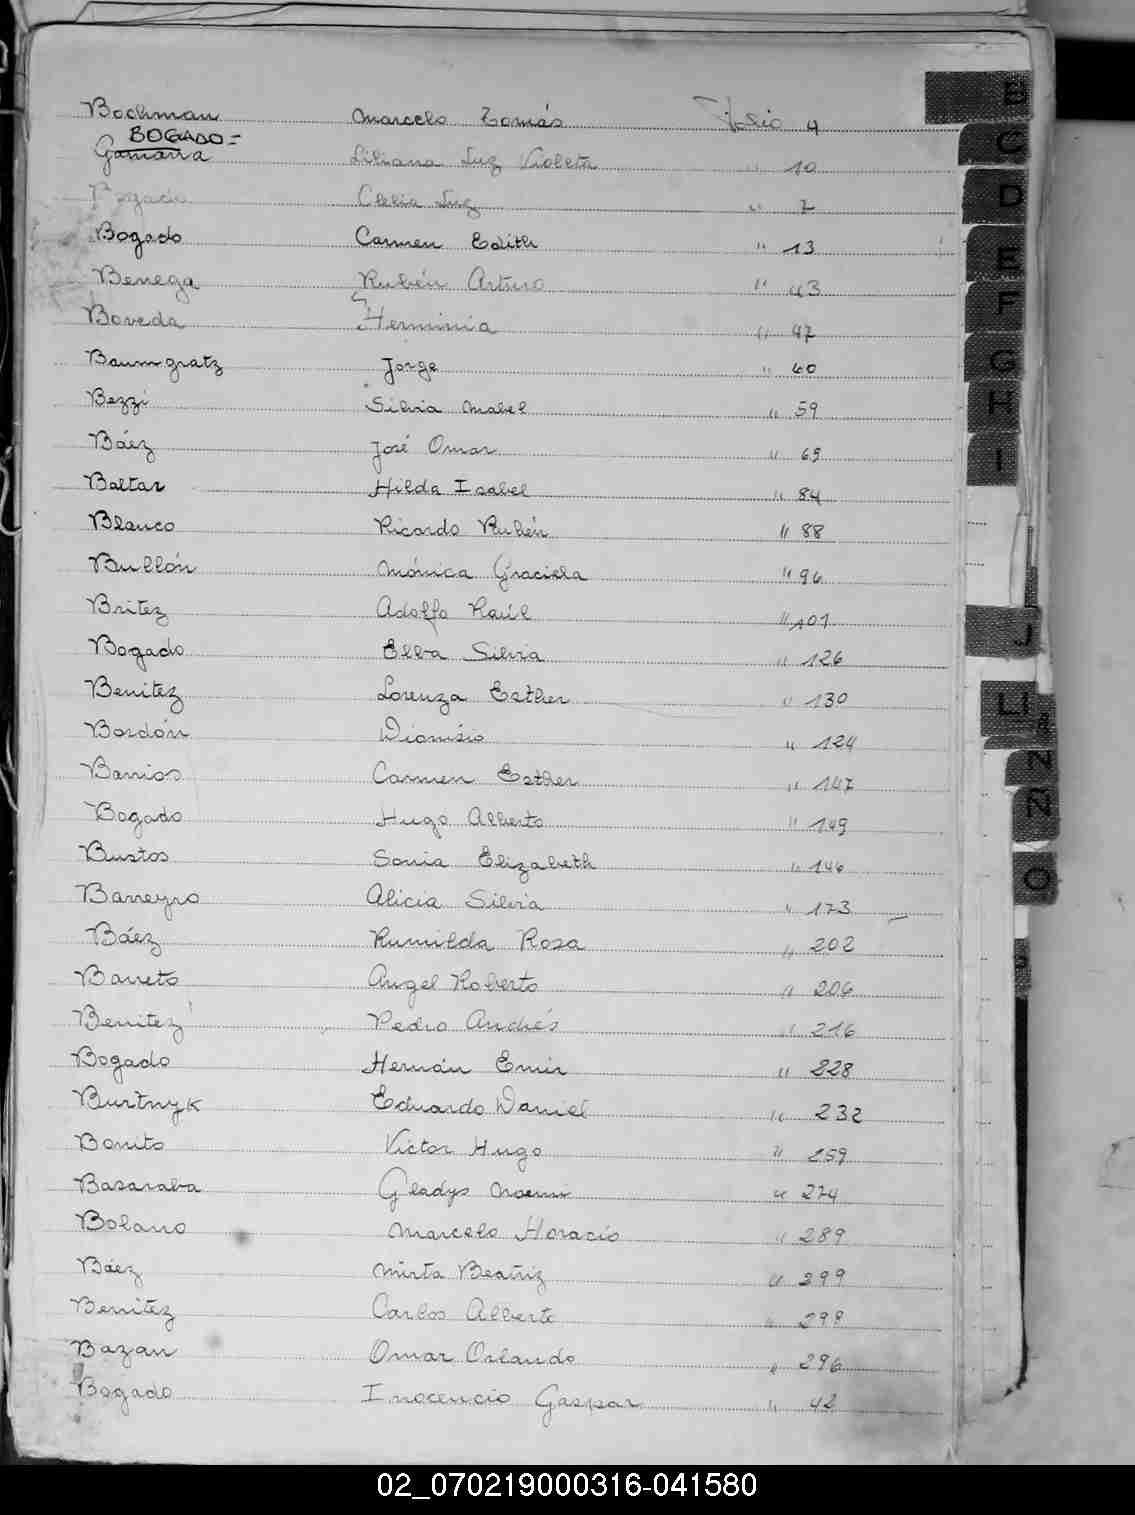 Bochman Marcelo Tomás Folio 4
BOGADO =
Gamarra Liliana Luz Violeta " 10
Bogado Clelia Luz " 7
Bogado Carmen Edith " 13
Benega Rubén Arturo " 43
Boveda Herminia " 47
Baumgratz Jorge " 60
Bezzi Silvia Mabel " 59
Báez José Omar " 69
Baltar Hilda Isabel " 84
Blanco Ricardo Rubén " 88
Bullón Mónica Graciela " 96
Britez Adolfo Raúl " 101
Bogado Elba Silvia " 126
Benitez Lorenza Esther " 130
Bordón Dionisio " 124
Barrios Carmen Esther " 147
Bogado Hugo Alberto " 149
Bustos Sonia Elizabeth " 146
Barreyro Alicia Silvia " 173
Báez Rumilda Rosa " 202
Barreto Angel Roberto " 206
Benitez Pedro Andrés " 216
Bogado Hernán Emir " 228
Burtnyk Eduardo Daniel " 232
Bonito Victor Hugo " 259
Basaraba Gladys Noemi " 274
Bolano Marcelo Horacio " 289
Báez Mirta Beatriz " 299
Benitez Carlos Alberto " 298
Bazan Omar Orlando " 296
Bogado Inocencio Gaspar " 42
B
C
D
E
F
G
H
I
J
Ll
N
Ñ
O
02_070219000316-041580